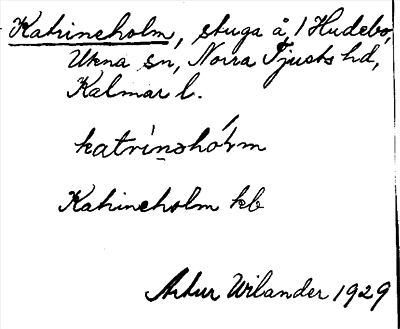 Katrineholm, stuga å 1 Hudebo,
Ukna sn, Norra Tjusts hd,
Kalmar l.
katrìnshól'm
Katrineholm kb
Artur Wilander 1929